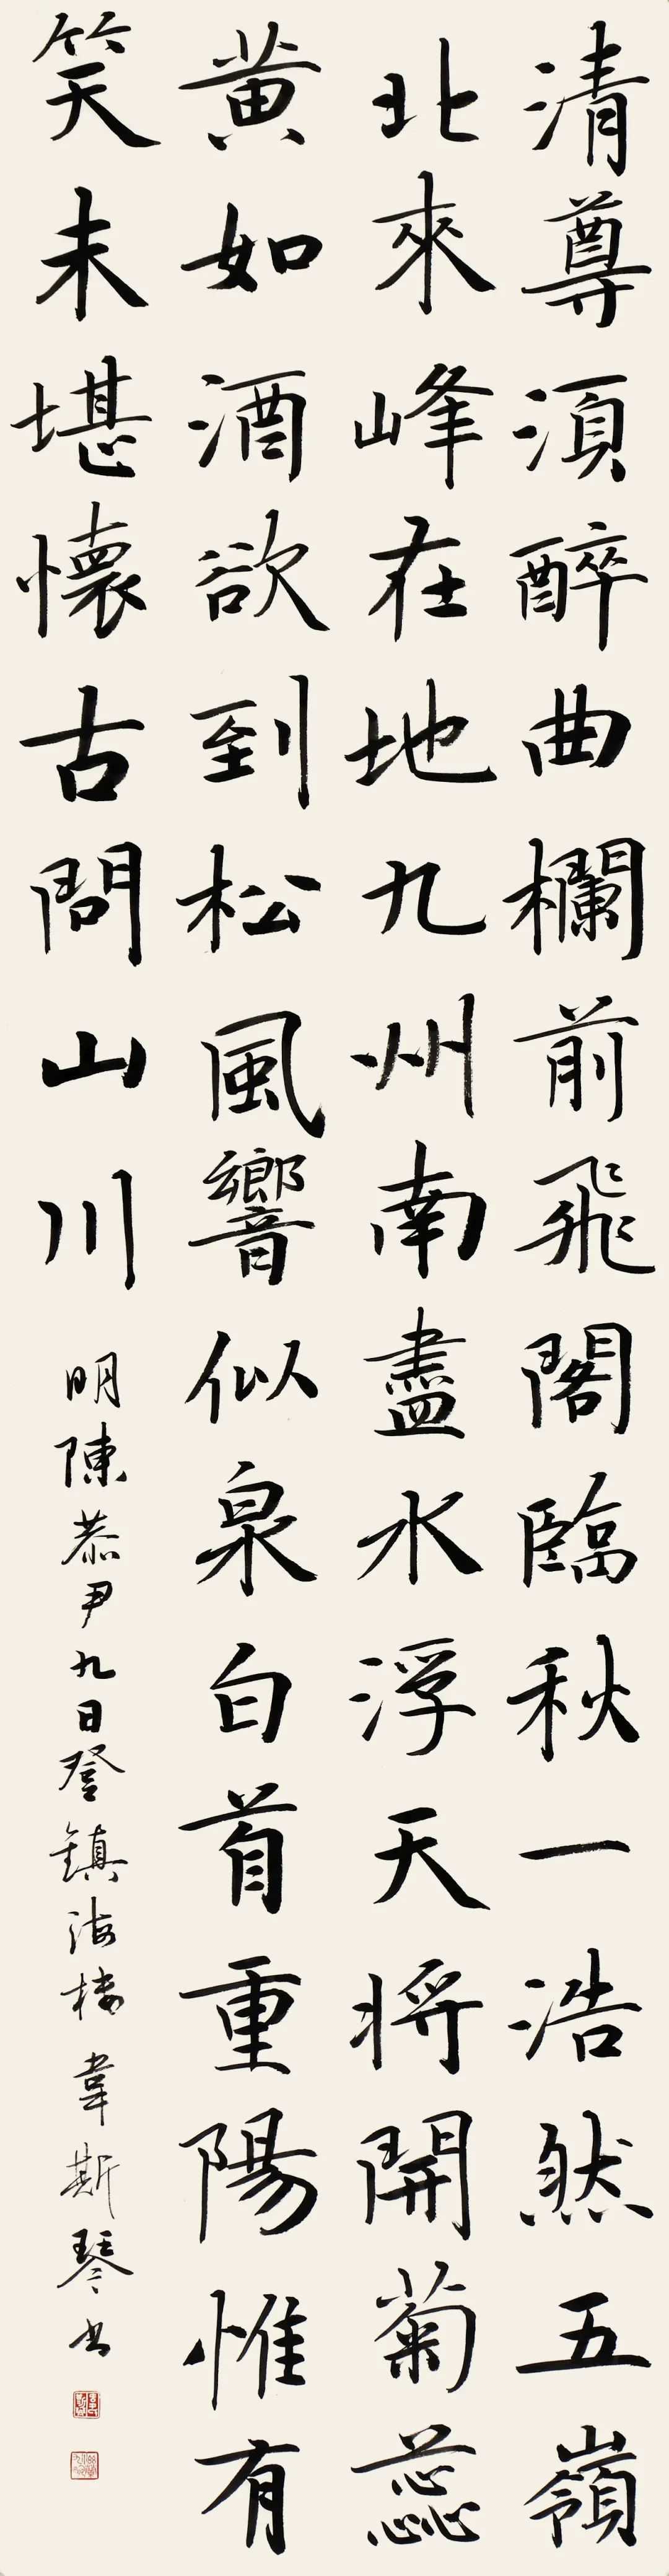 清尊須醉曲欄前飛閣臨秋一浩然五嶺
北來峰在地九州南盡水浮天將開菊蕊
黄如酒欲到松風響似泉白首重陽惟有
笑未堪懷古問山川
明陳恭尹九日登鎮海樓韋斯琴書